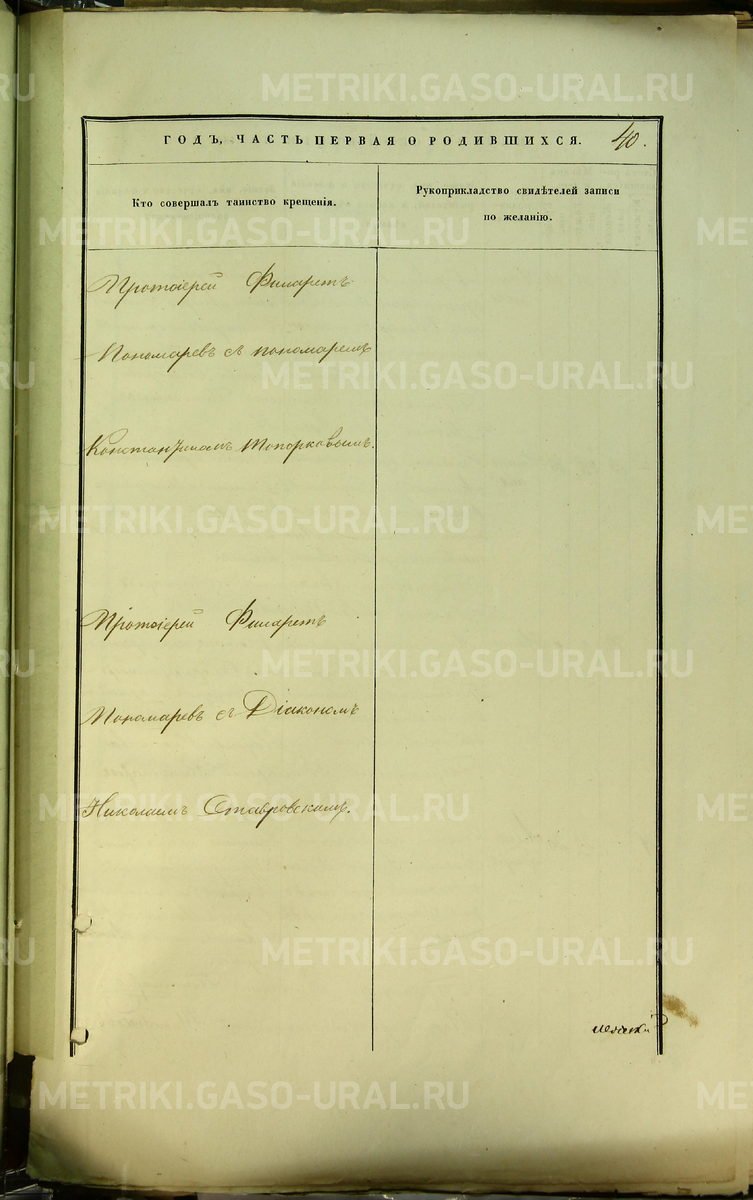 ГОДЪ, ЧАСТЬ ПЕРВАЯ О РОДИВШИХСЯ. 40.
Кто совершалъ таинство крещенія.
Рукоприкладство свидѣтелей записи
по желанію.
Протоіерей Филаретъ
Пономаревъ съ пономаремъ
Константиномъ Топорковымъ.
Протоіерей Филаретъ
Пономаревъ съ Діакономъ
Николаемъ Ставровскимъ.
METRIKI.GASO-URAL.RU
METRIKI.GASO-URAL.RU
METRIKI.GASO-URAL.RU
METRIKI.GASO-URAL.RU
METRIKI.GASO-URAL.RU
METRIKI.GASO-URAL.RU
METRIKI.GASO-URAL.RU
METRIKI.GASO-URAL.RU